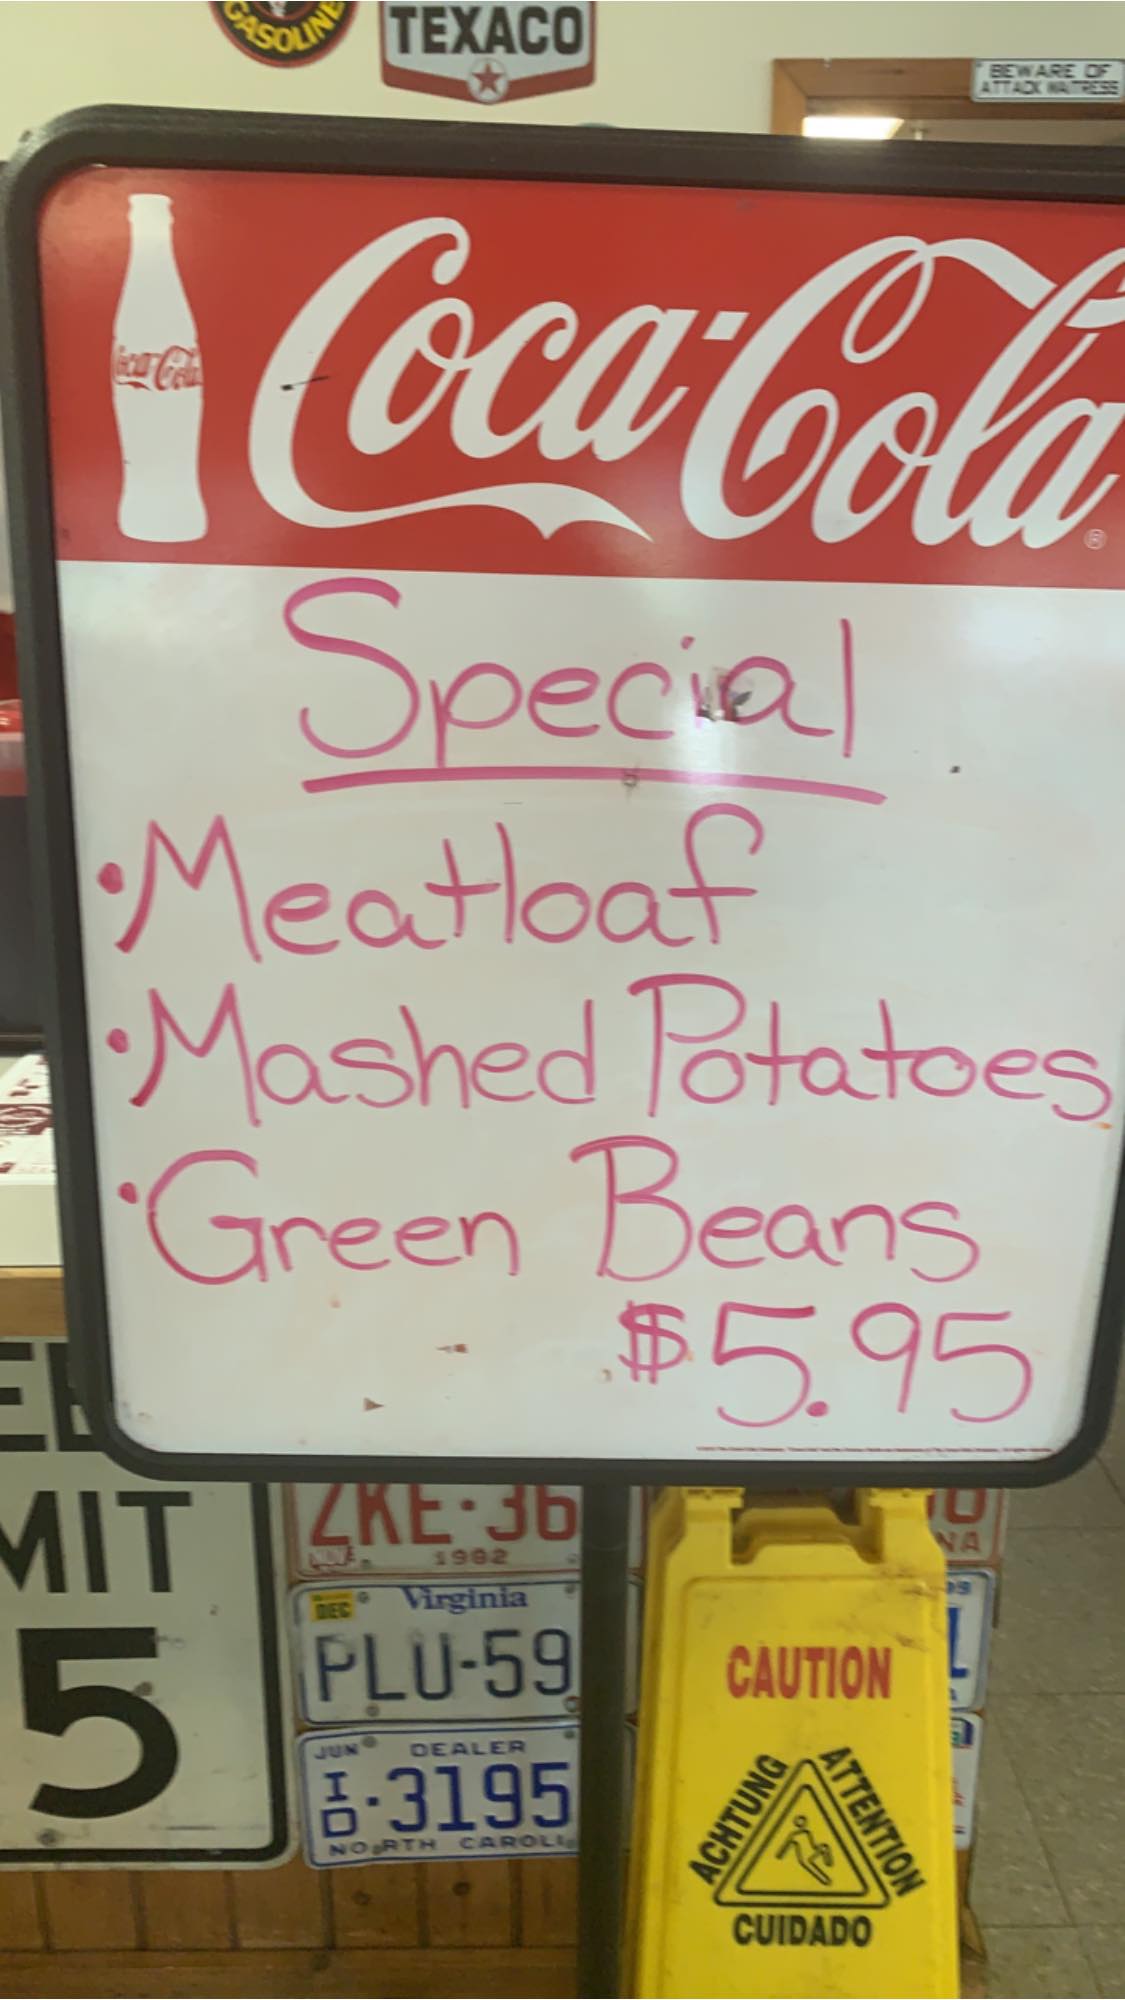 GASOLINE
TEXACO
BEWARE OF
ATTACK WAITRESS
Coca-Cola
Coca-Cola®
Special
•Meatloaf
•Mashed Potatoes
•Green Beans
$5.95
MIT
5
ZKE·36
1982
DEC Virginia
PLU-59
JUN DEALER
ID·3195
NORTH CAROLI
NA
CAUTION
ACHTUNG
ATTENTION
CUIDADO